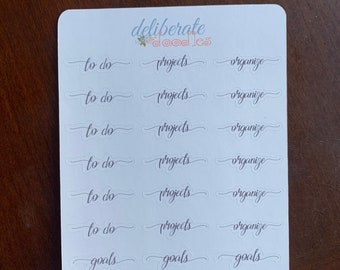 deliberate
doodles
to do projects organize
to do projects organize
to do projects organize
to do projects organize
to do projects organize
to do projects organize
goals goals goals